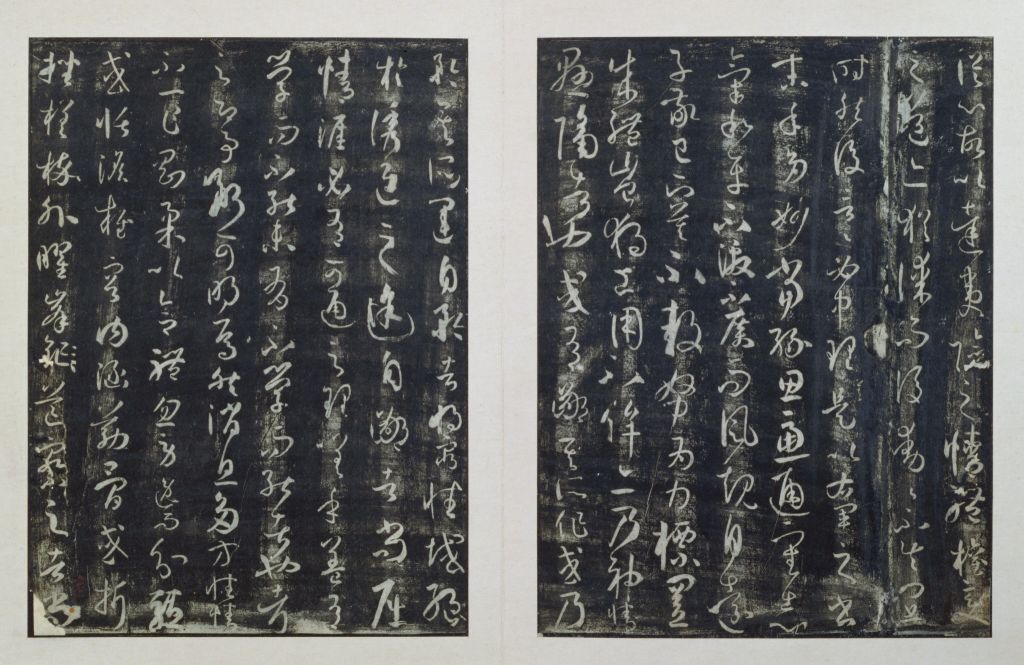 從心故以達夷險之情體權變
之道亦猶謀而後動動不失宜
時然後言言必中理矣是以右軍之書
末年多妙當緣思慮通審志
氣和平不激不厲而風規自遠
子敬已下莫不鼓努為力標置
成體豈獨工用不侔亦乃神情
懸隔者也或有鄙其所作或乃
矜其所運自矜者將窮性域絕
於誘進之途自鄙者尚屈
情涯必有可通之理嗟乎蓋有
學而不能未有不學而能者也考
之即事斷可明焉然消息多方性情
不一乍剛柔以合體忽勞逸而分驅
或恬憺雍容內涵筋骨或折
挫槎枿外曜鋒芒察之者尚